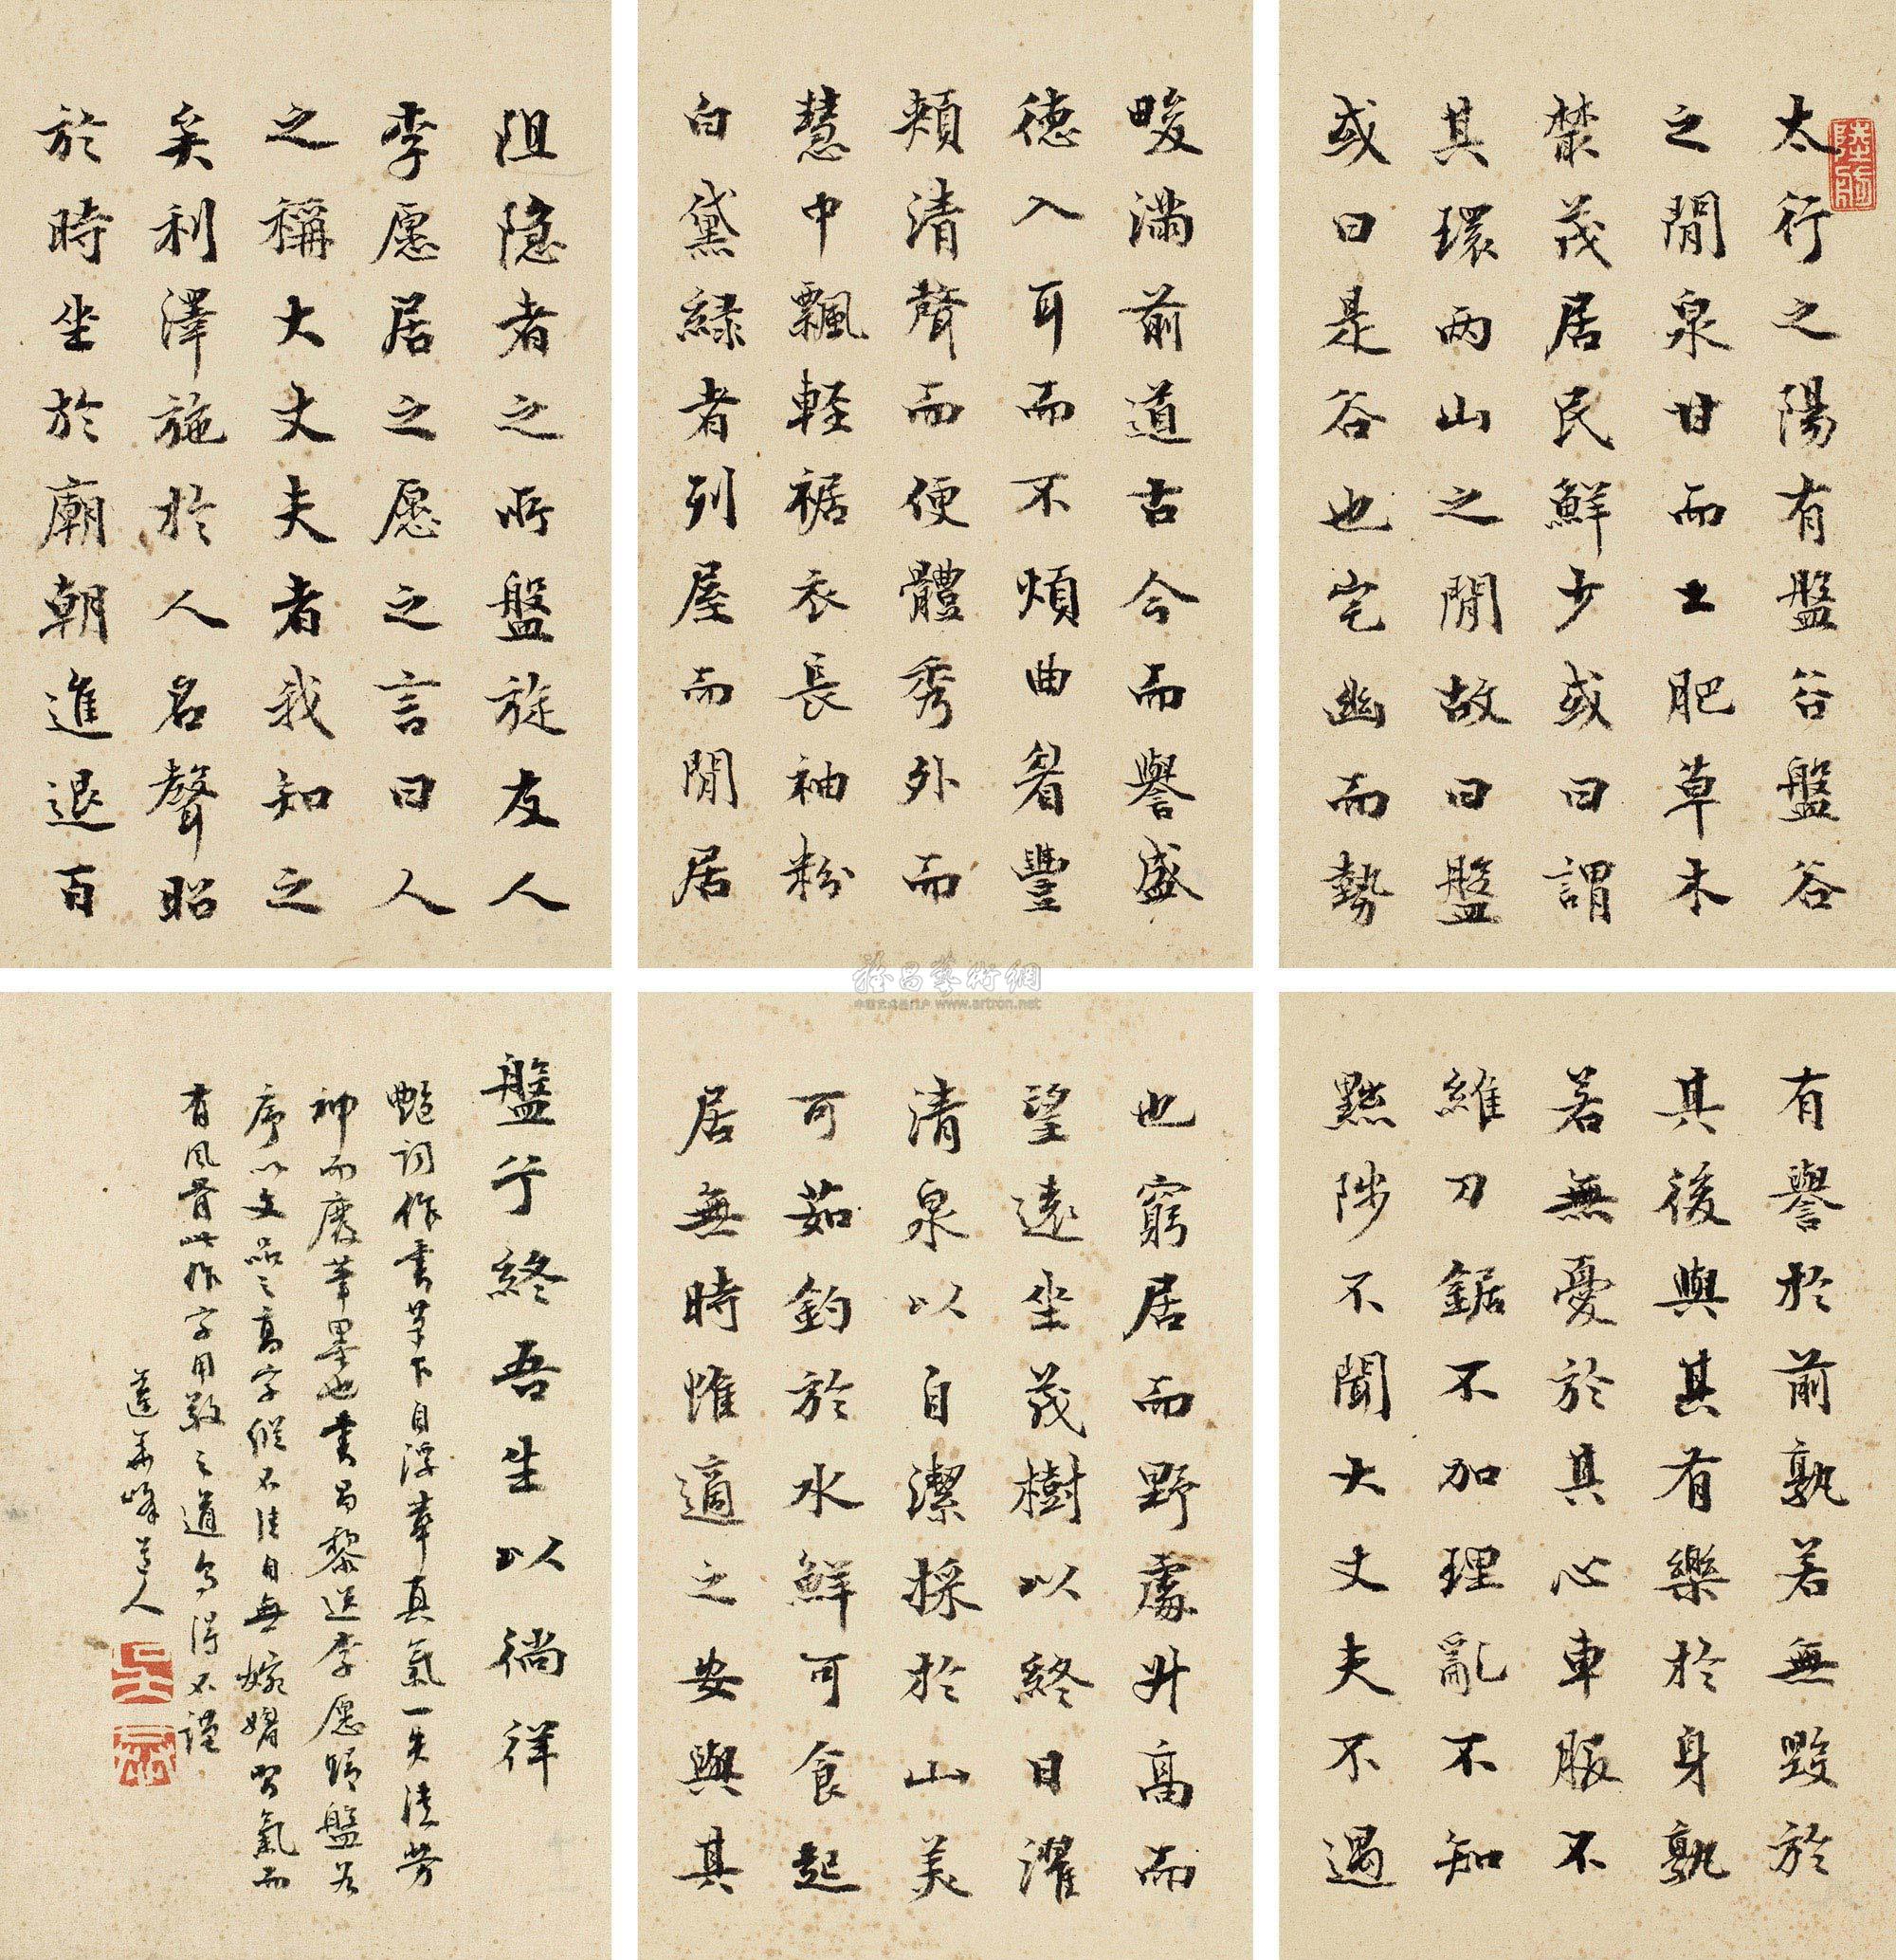 太行之陽有盤谷盤谷
之閒泉甘而土肥草木
藂茂居民鮮少或曰謂
其環兩山之閒故曰盤
或曰是谷也宅幽而勢
阻隱者之所盤旋友人
李愿居之愿之言曰人
之稱大丈夫者我知之
矣利澤施於人名聲昭
於時坐於廟朝進退百
畯滿前道古今而譽盛
德入耳而不煩曲眉豐
頰清聲而便體秀外而
慧中飄輕裾衣長袖粉
白黛綠者列屋而閒居
也窮居而野處升高而
望遠坐茂樹以終日濯
清泉以自潔採於山美
可茹釣於水鮮可食起
居無時惟適之安與其
有譽於前孰若無毀於
其後與其有樂於身孰
若無憂於其心車服不
維刀鋸不加理亂不知
黜陟不聞大丈夫不遇
盤兮終吾生以徜徉
艷詞作書筆下自浮華真氣一失徒勞
神而廢筆墨也書昌黎送李愿歸盤谷
序以文品之高字縱不佳自無婉媚習氣而
有風骨此作字用敬之道烏得不謹
蓮華峰道人
雅昌藝術網
www.artron.net